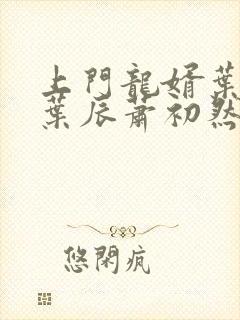 上門龍婿葉
葉辰蕭初然
悠閑疯